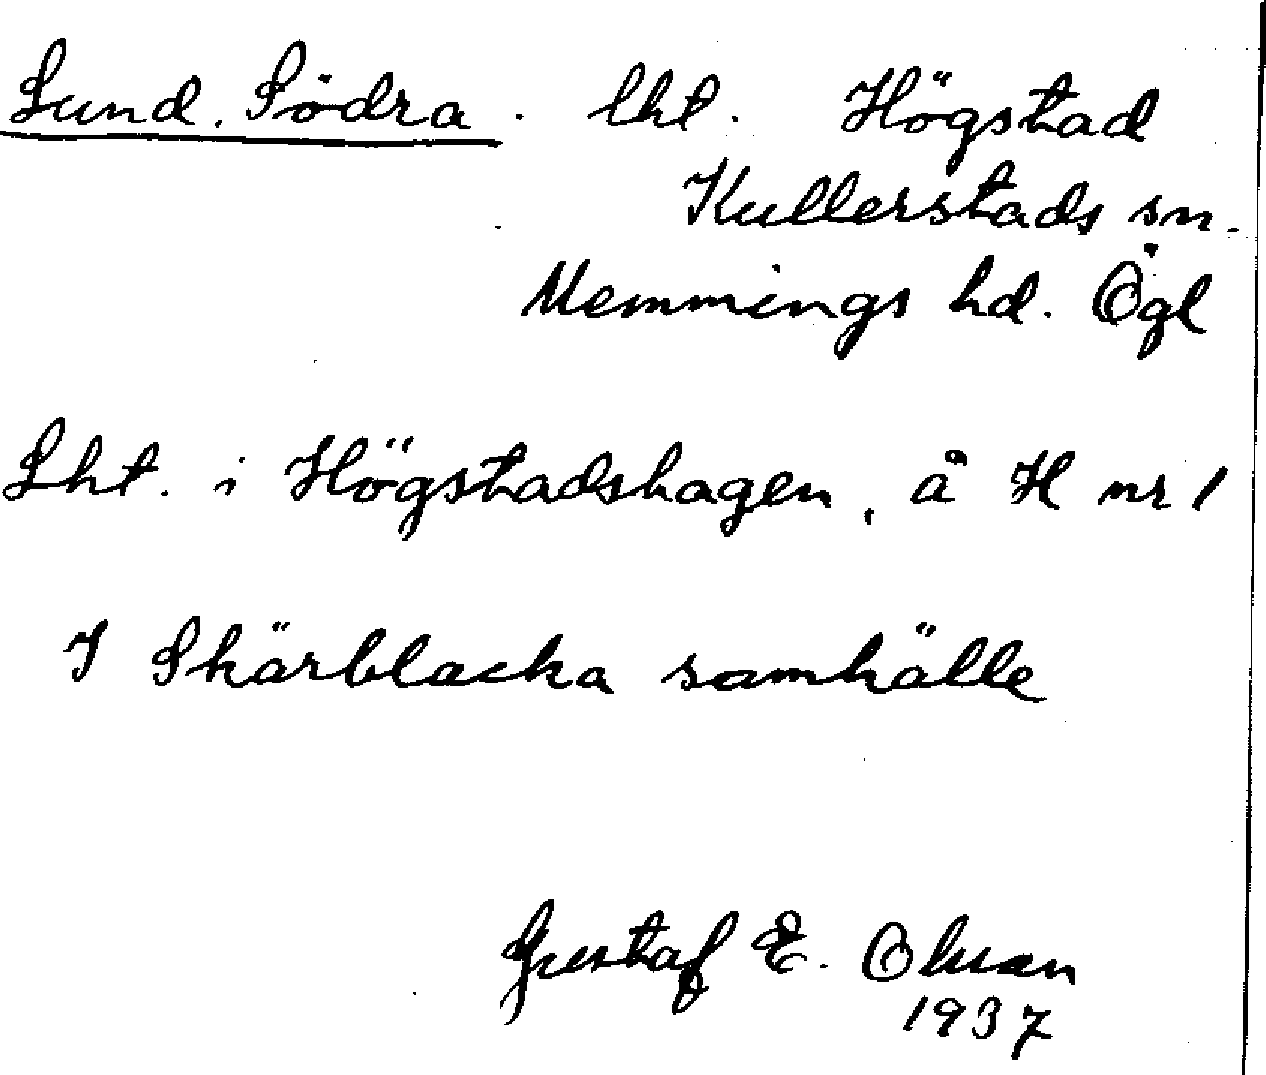 Lund, Södra. lht. Högstad
Kullerstads sn.
Memmings hd. Ögl
Lht. i Högstadshagen, å H nr 1
I Skärblacka samhälle
Gustaf E. Olsson
1937